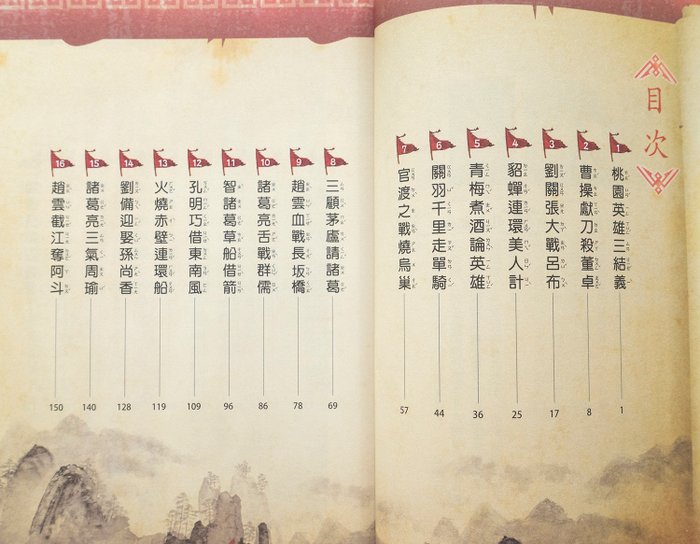 目次
1 桃園英雄三結義 1
2 曹操獻刀殺董卓 8
3 劉關張大戰呂布 17
4 貂蟬連環美人計 25
5 青梅煮酒論英雄 36
6 關羽千里走單騎 44
7 官渡之戰燒烏巢 57
8 三顧茅廬請諸葛 69
9 趙雲血戰長坂橋 78
10 諸葛亮舌戰群儒 86
11 智諸葛草船借箭 96
12 孔明巧借東南風 109
13 火燒赤壁連環船 119
14 劉備迎娶孫尚香 128
15 諸葛亮三氣周瑜 140
16 趙雲截江奪阿斗 150